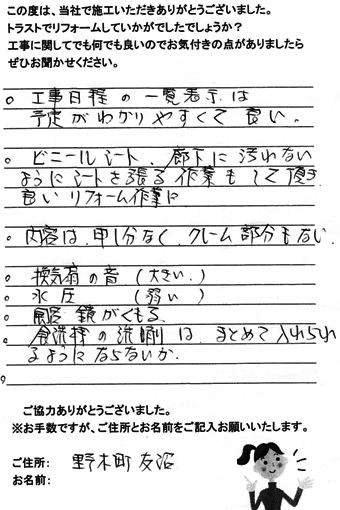 この度は、当社で施工いただきありがとうございました。
トラストでリフォームしていかがでしたでしょうか？
工事に関してでも何でも良いのでお気付きの点がありましたら
ぜひお聞かせください。
○ 工事日程の一覧表示は
予定がわかりやすくて良い。
○ ビニールシート、廊下に汚れない
ようにシートを張る作業もして頂き
良いリフォーム作業に
○ 内容は、申し分なく、クレーム部分もない
○ 換気扇の音（大きい。）
○ 水圧（弱い）
○ 風呂 鏡がくもる。
○ 食洗機の洗剤は、まとめて入れられ
るようにならないか。
ご協力ありがとうございました。
※お手数ですが、ご住所とお名前をご記入お願いいたします。
ご住所： 野木町友沼
お名前：